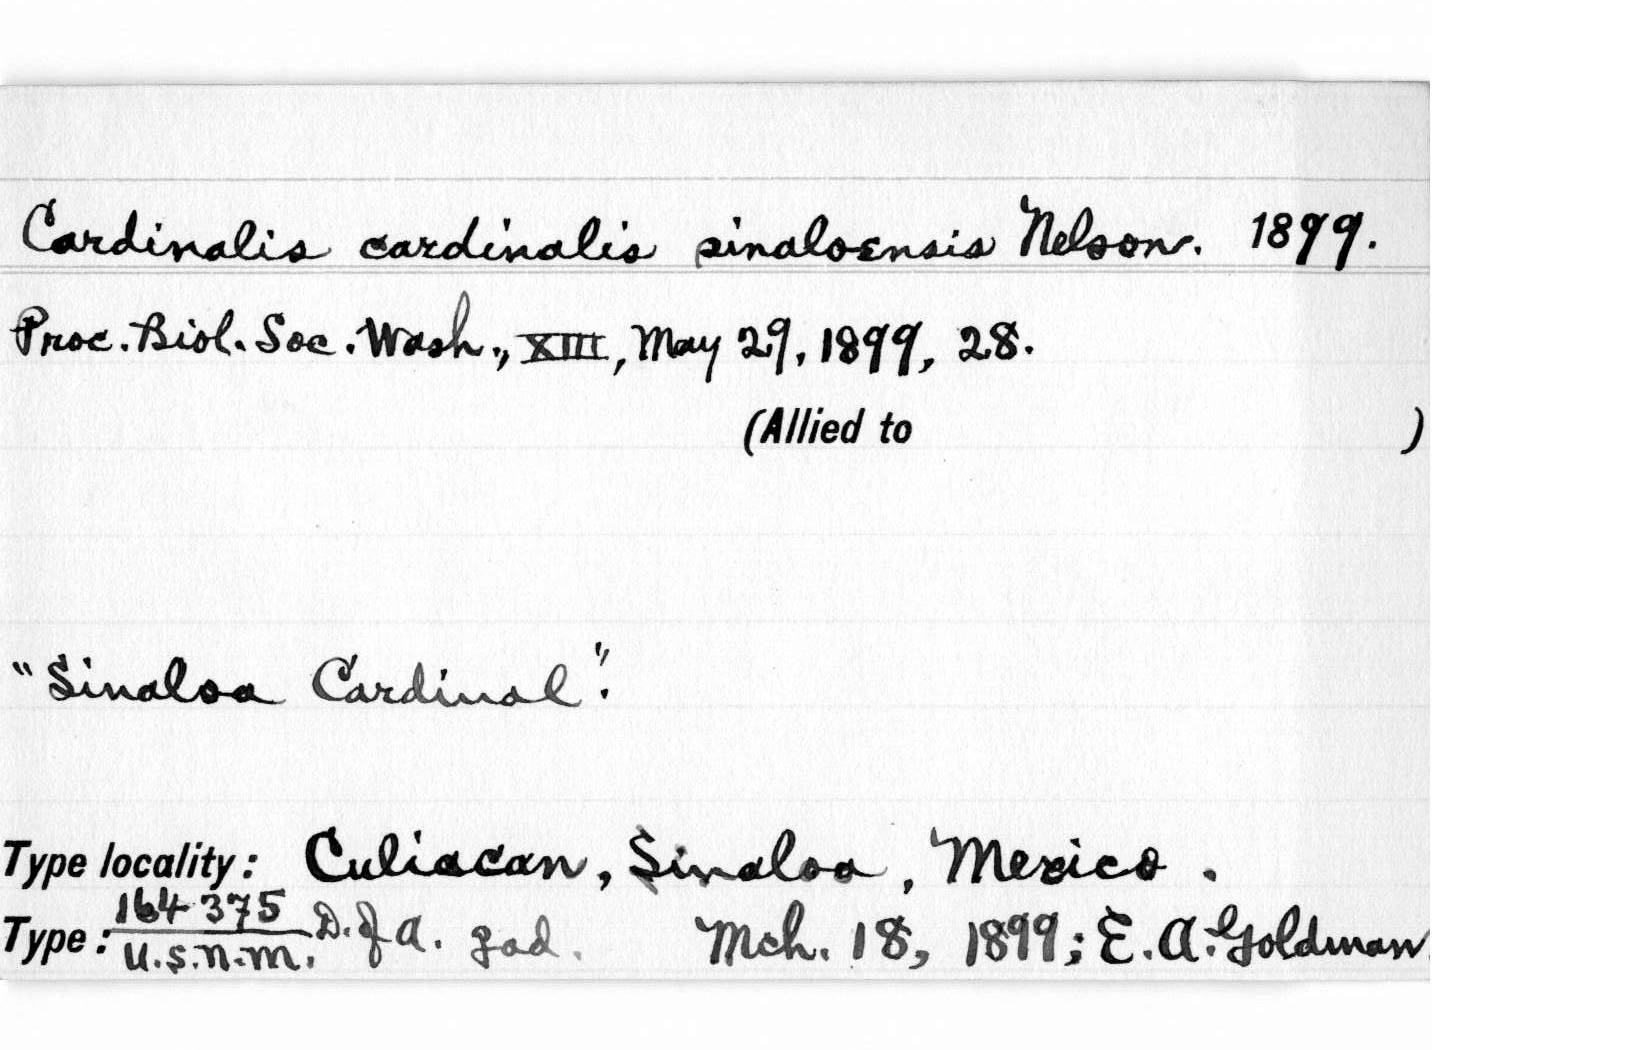 Cardinalis cardinalis sinaloensis Nelson. 1899.
Proc. Biol. Soc. Wash., XIII, May 29, 1899, 28.
(Allied to )
"Sinaloa Cardinal".
Type locality: Culiacan, Sinaloa, Mexico.
164375
Type: U.S.N.M. D. of A. ad. Mch. 18, 1899; E.A. Goldman